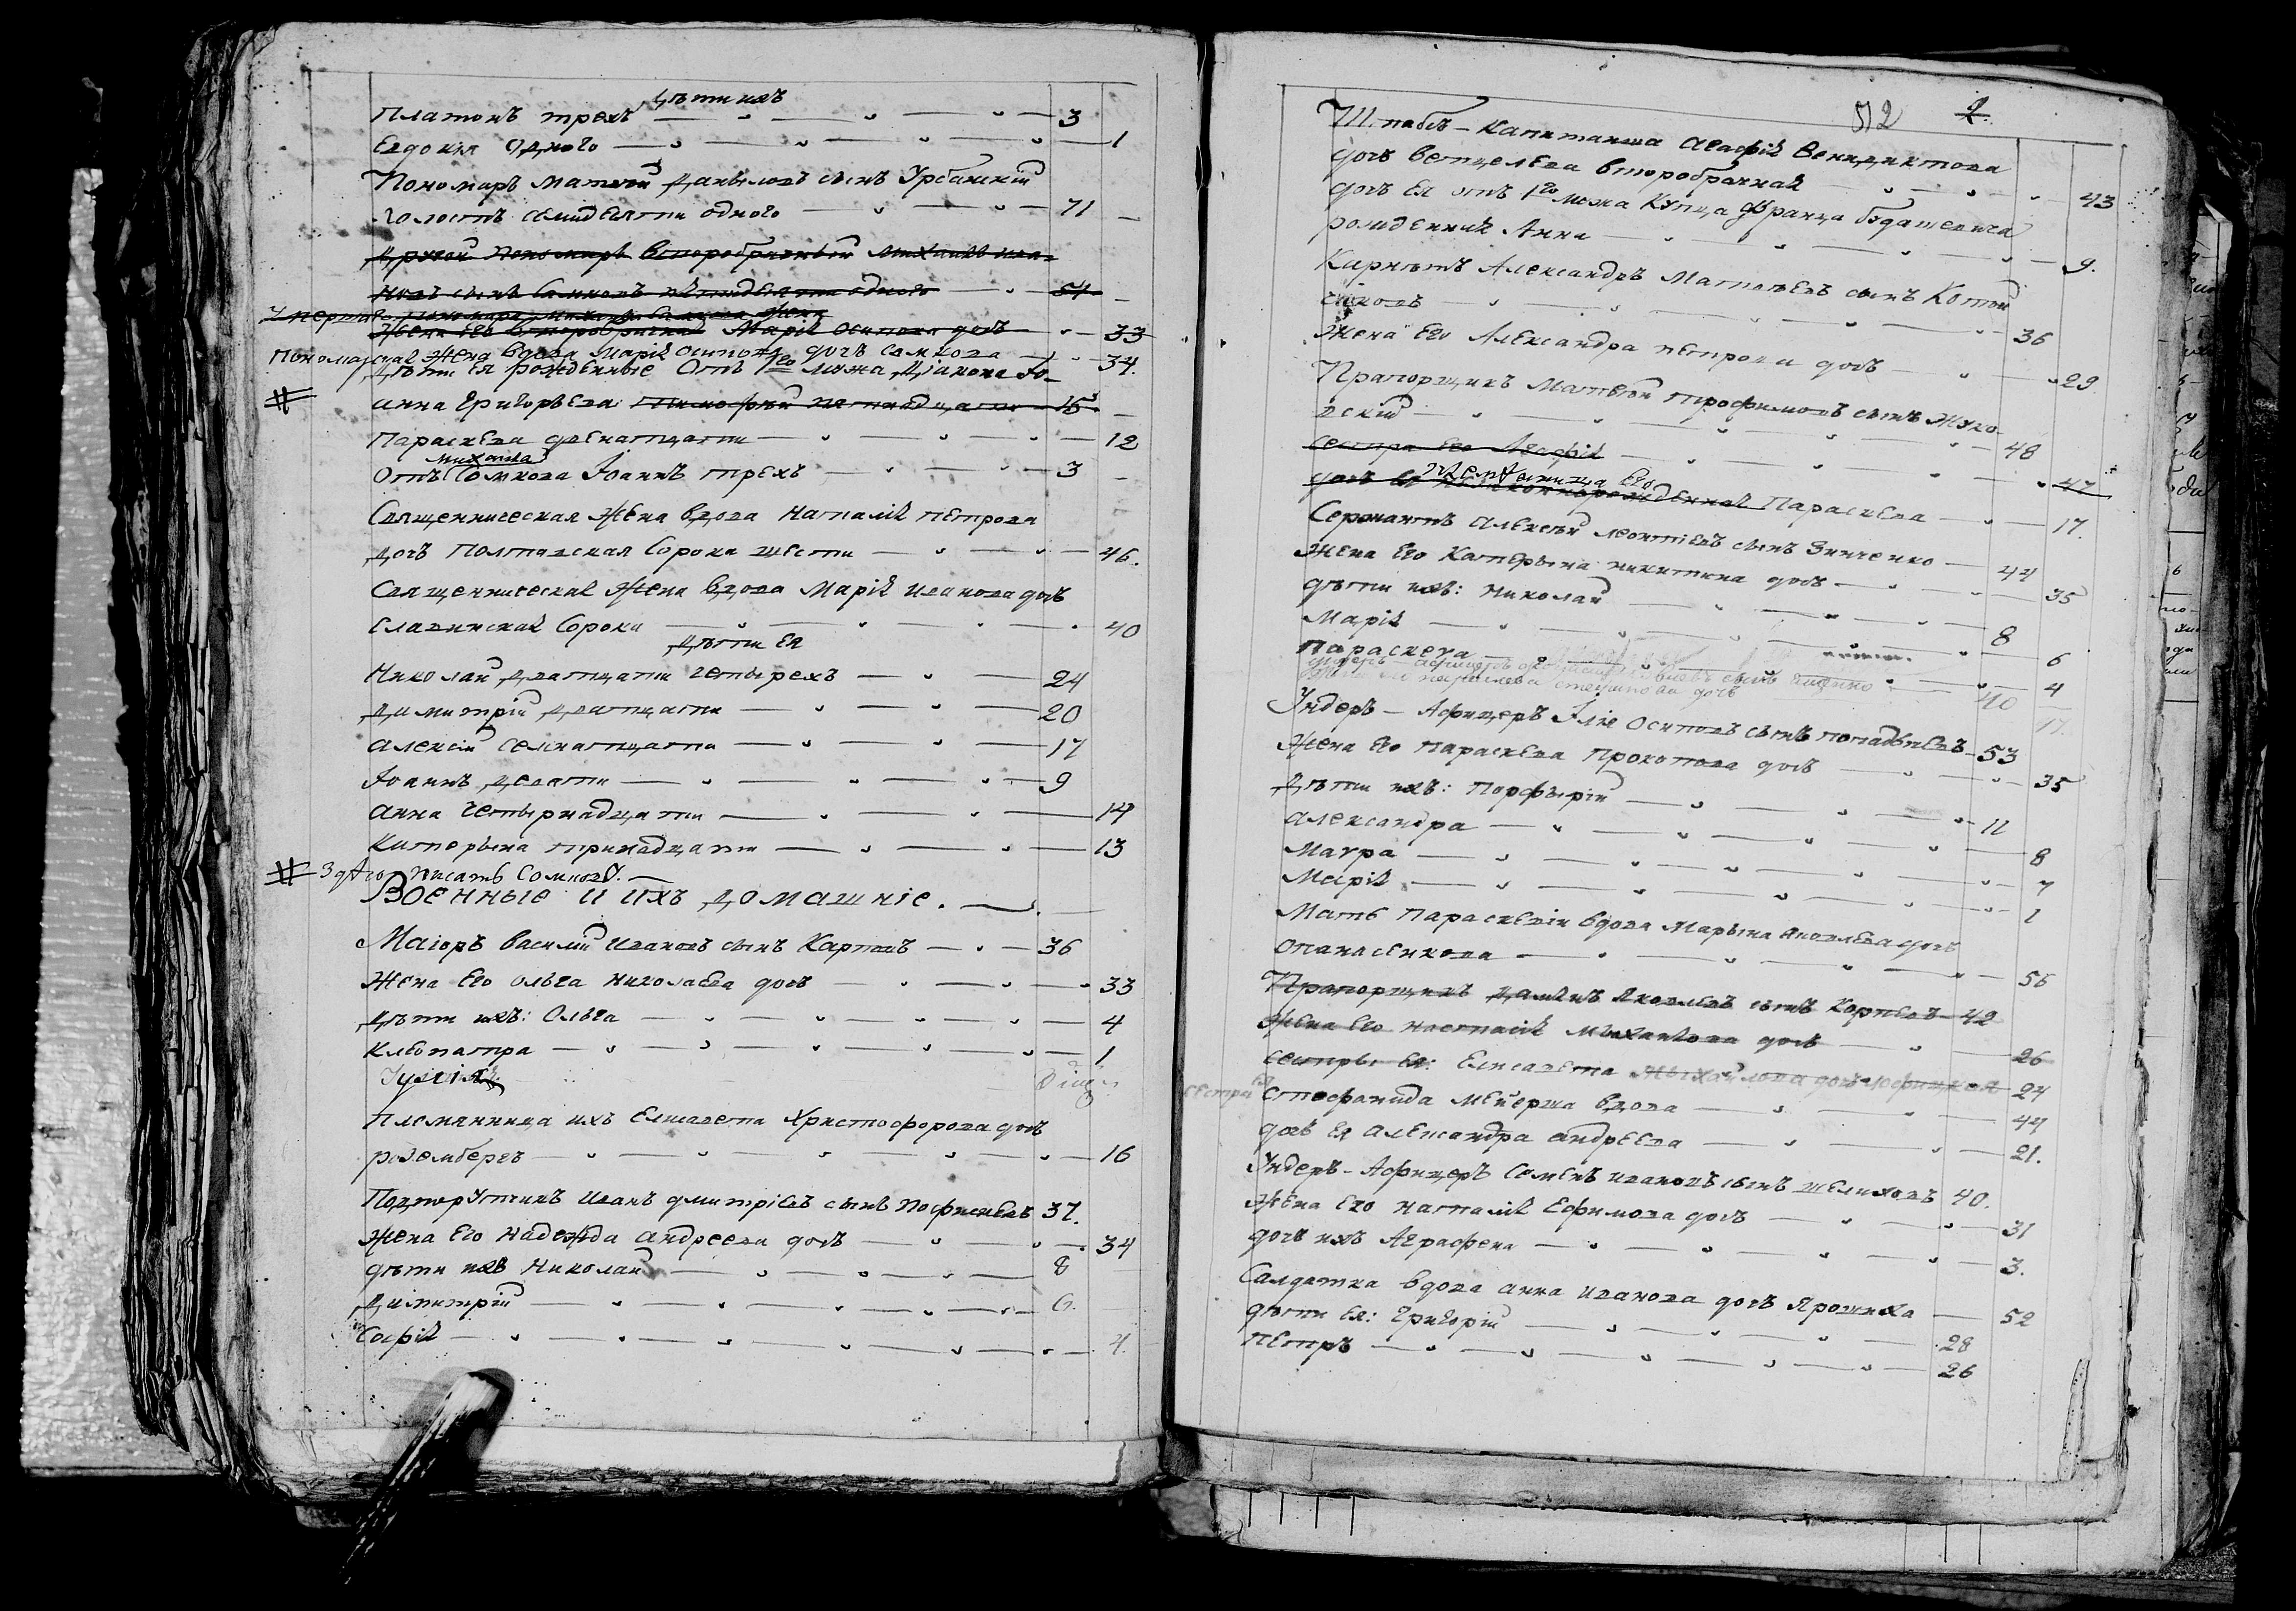 дѣти ихъ
Платонъ трехъ 3
Евдокія одного 1
Пономаръ Матѳей Даниловъ сынъ Урбанскій
холостъ семидесяти одного 71
Другой пономаръ второбрачный Михаилъ Ива-
новъ сынъ Сомковъ пятидесяти одного 51
Умершаго пономара Михаила Сомкова жена
Жена его второбрачная Марія Осипова дочь 33
Пономарская жена вдова Марія Осипова дочь Сомкова 34.
Дѣти ея рожденные отъ 1го мужа Діакона Іо-
# анна Григорьева Тимофѣй пятнадцати 15
Параскева двенатцати 12
Михаила
отъ Сомкова Іоаннъ трехъ 3
Священническая жена вдова Наталія Петрова
дочъ Полтавская сорока шести 46.
Священническая жена вдова Марія Иванова дочь
Славинская сорока 40
Дѣти ея
Николай дватцати четырехъ 24
Димитрій дватцати 20
Алексій семнатцати 17
Іоаннъ девяти 9
Анна четырнадцати 14
Катерына тринадцати 13
# Здѣсь писать Сомкова.
Военные и ихъ домашніе.
Маіоръ Василій Ивановъ сынъ Карповъ 36
Жена его Ольга Николаева дочь 33
Дѣти ихъ: Ольга 4
Клеопатра 1
Іулія
Племянница ихъ Елисавета Христофорова дочь
розембергъ 16
Подпорутчикъ Иванъ Дмитріевъ сынъ 37.
Жена его Надежда Андреева дочь 34
дѣти ихъ Николай 8
Димитрій 6.
Софія 4.
512
Штабсъ-Капитанша Агафія Венидиктова
дочь Ветцелева второбрачная 43
дочь ея отъ 1го мужа купца Франца Будашевича
рожденная Анна 9.
Карнетъ Александръ Матвѣевъ сынъ
36
Жена его Александра Петрова дочь 29
Прапорщикъ Матвѣй Трофимовъ сынъ Жуко-
вскій 48
сестра его Агафія 47
Племянница его
дочь ея незаконнорожденная Параскева 17.
Сержантъ Алексѣй Леонтіевъ сынъ Зинченко 44
Жена его Катерына Никитина дочь 35
дѣти ихъ: Николай 8
Марія 6
Параскева 4
Ундеръ-Афицеръ сынъ 40
Жена его Параскева Стефанова дочь 17.
Ундеръ-Афицеръ Илія Осиповъ сынъ 53
Жена его Параскева Прокопова дочь 35
Дѣти ихъ: Порфырій 11
Александра 8
Мавра 7
Марія 1
Мать Параскевіи вдова Марына Яковлева дочь
Опанасенкова 56
Прапорщикъ Даміянъ Яковлевъ сынъ Карпевъ 42
Жена его Наталія Михайлова дочь 26
сестры ея: Елисавета Михайлова дочь 24
сестра ея Стефанида Мейерша вдова 44
дочь ея Александра Андреева 21.
Ундеръ-Афицеръ Семенъ Ивановъ сынъ Шелиховъ 40.
Жена его Наталія Ефимова дочь 31
дочь ихъ Аграфена 3.
Салдатка вдова Анна Иванова дочь Ярошиха 52
дѣти ея: Григорій 28
Петръ 26